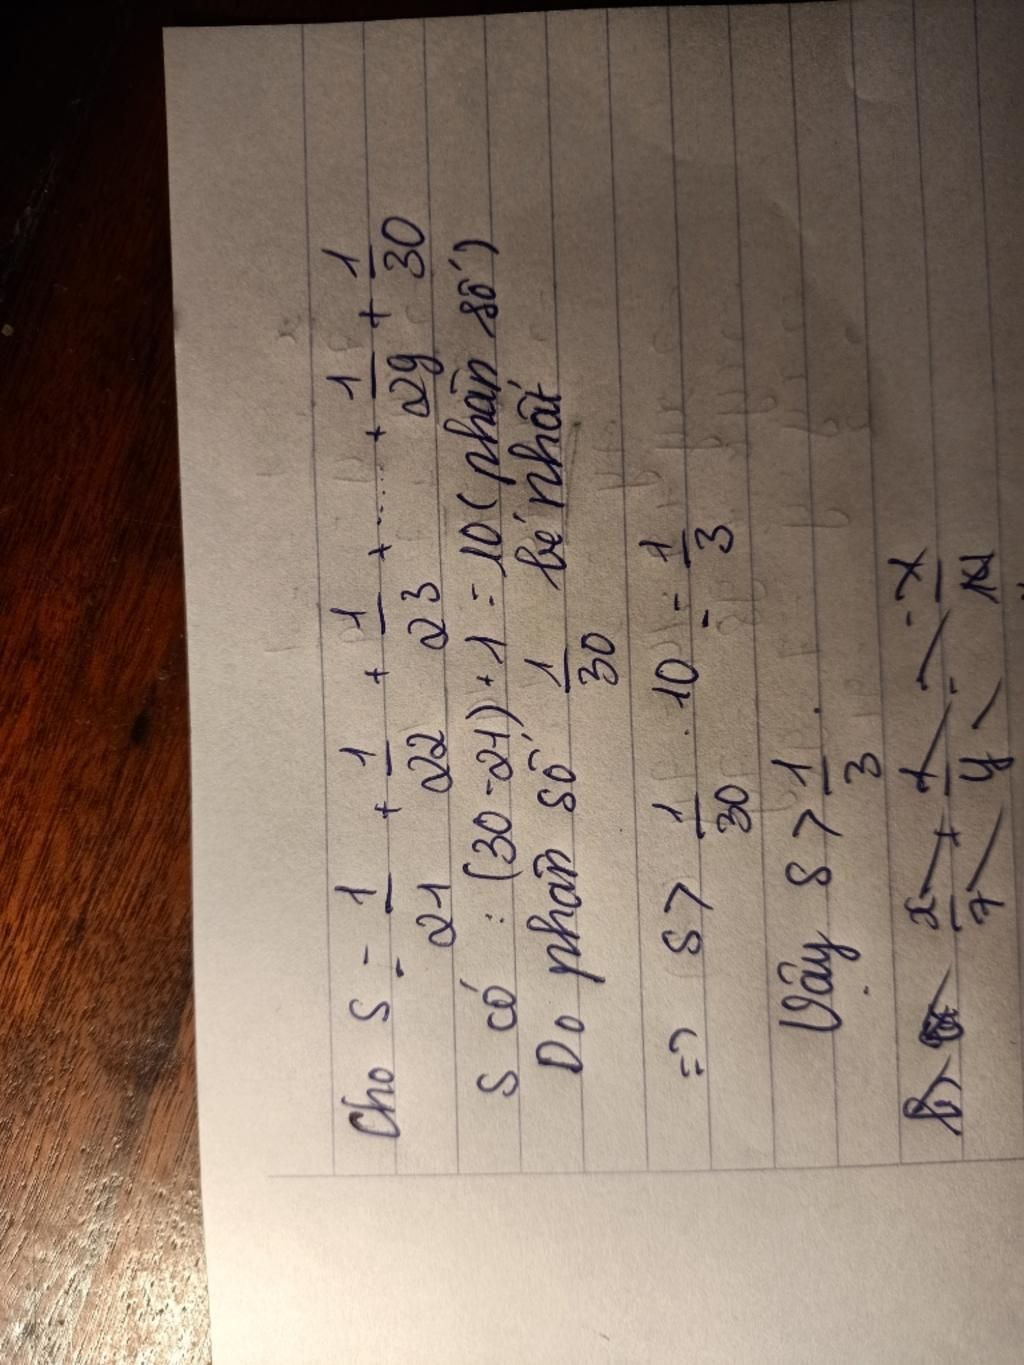 Cho S = 1/21 + 1/22 + 1/23 + ..... + 1/29 + 1/30
S có : (30-21)+1 = 10 (phân số)
Do phân số 1/30 bé nhất
=> S > 1/30 . 10 = 1/3
Vậy S > 1/3 .